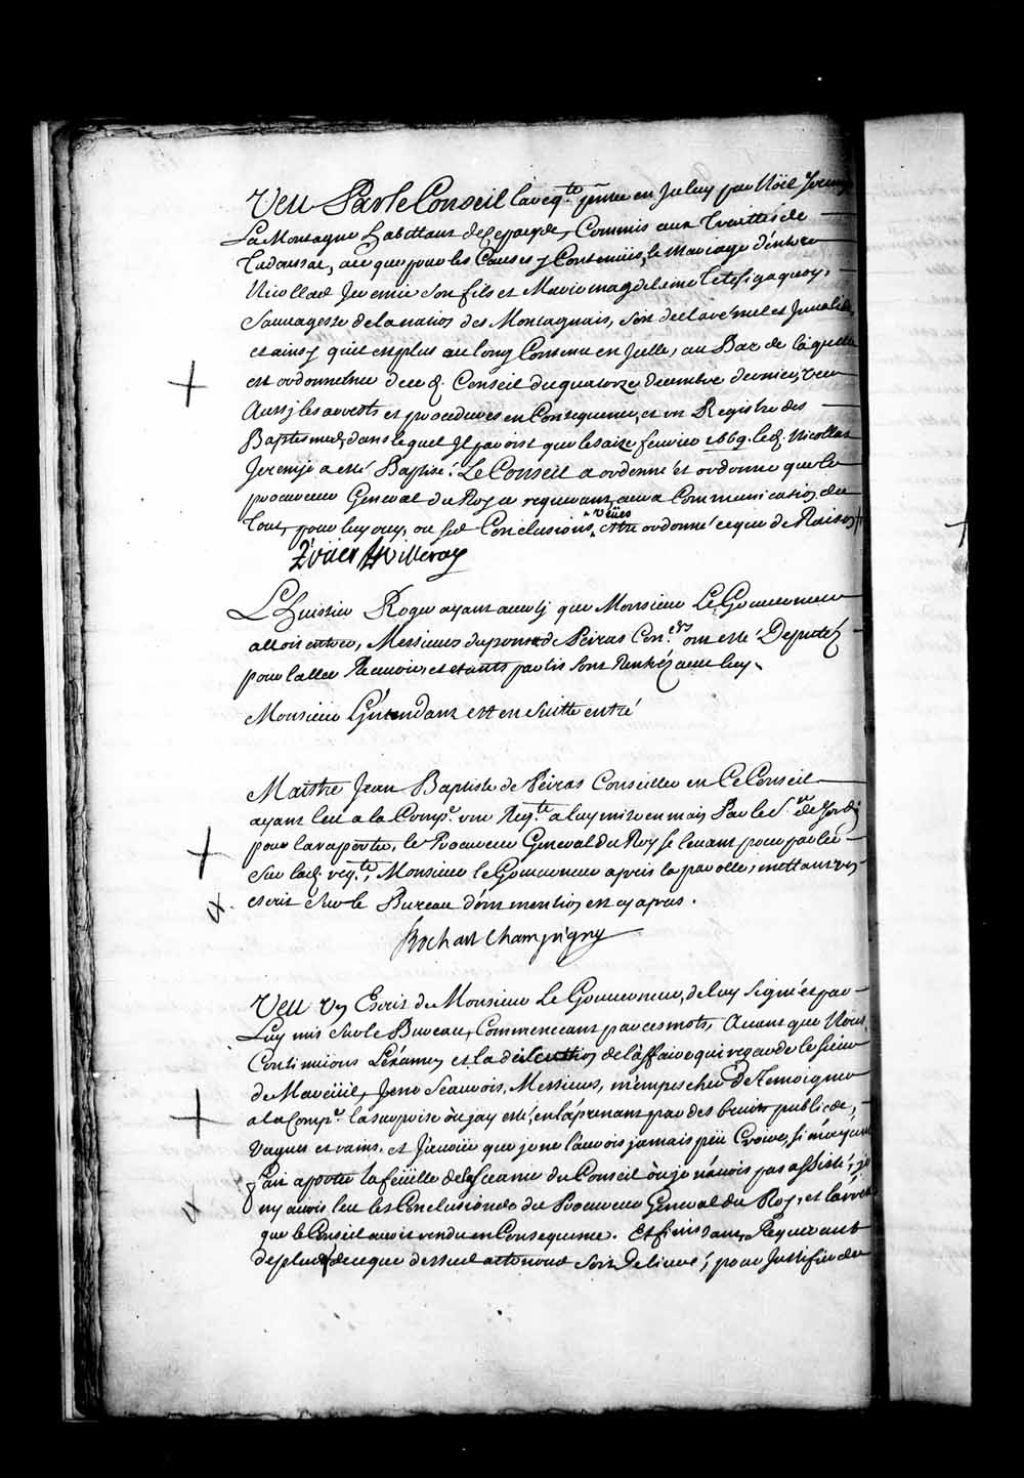 Veu Par le Conseil la req.te pntée en Iceluy par Noël Jeremye
La Montagne habittant de ce pays, Commis aux Traittes de
Tadoussac, a ce que pour les Causes y Contenües, le Mariage d'entre
Nicollas Jeremie son fils et Marie magdeleine Tetesigaguoy,
Sauvagesse de la nation des Montagnais, soit declaré nul et Invalide,
et ainsy qu'il est plus au long Contenu en Icelle, au Bas de laquelle
est ordonnance de ce d. Conseil du quatorze decembre dernier, veu
Aussy les arrests et procedures en Consequence, et un Registre des
Baptesmes, dans lequel Il paroist que le seize fevrier 1669. led. Nicollas
Jeremie a esté Baptisé. Le Conseil a ordonné et ordonne que le
procureur General du Roy a requerant, aura Communication du
Tout, pour luy ouy, ou ses Conclusions veües estre ordonné ce que de Raison
Roüer de Villeray
L'huissier Roger ayant averty que Monsieur Le Gouverneur
alloit entrer, Messieurs dupont et de Peiras Con.ers ont esté Deputéz
pour l'aller Recevoir, et estants partis sont Rentréz avec luy.
Monsieur L'Intendant est en suitte entré
Maistre Jean Baptiste de Peiras Conseiller en Ce Conseil
ayant leu a la Comp.e une Req.te a luy mise en main Par le S.r de
pour la raporter, le Procureur General du Roy se levant pour parler
sur lad. req.te, Monsieur le Gouverneur a pris la parolle, mettant un
escrit sur le Bureau dont mention est cy apres.
Bochart Champigny
Veu Un Escrit de Monsieur Le Gouverneur, de luy signé et par
Luy mis sur le Bureau, Commenceant par ces mots, Avant que Nous
Continuions L'examen et la discution de l'affaire qui regarde le sieur
de Mareüil, Je ne sçaurois, Messieurs, m'empescher de Temoigner
a la Comp.e la surprise où j'ay esté, en l'aprenant par des bruits publics,
vagues et vains, et J'avoüe que je ne l'aurois jamais peü Croire, si m'ayant
fait aporter la feüille de la sceance du Conseil où je n'avois pas assisté, je
n'y avois leu les Conclusions du Procureur General du Roy, et l'arrest
que le Conseil avoit rendu en Consequence. Et finissant, Requerant
de plus que ce que dessus actenvoud soit Delivré, pour Justifier du